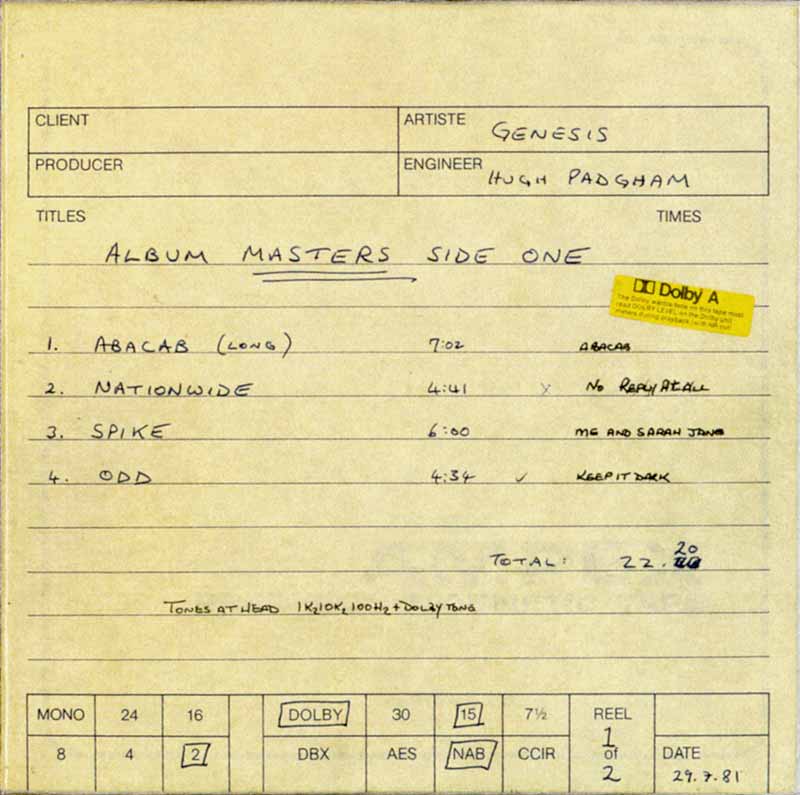 CLIENT ARTISTE GENESIS
PRODUCER ENGINEER HUGH PADGHAM
TITLES TIMES
ALBUM MASTERS SIDE ONE
Dolby A
The Dolby
read DOLBY LEVEL on the Dolby unit
meters during playback (with NR out)
1. ABACAB (LONG) 7:02 ABACAB
2. NATIONWIDE 4:41 X NO REPLY AT ALL
3. SPIKE 6:00 ME AND SARAH JANE
4. ODD 4:34 ✓ KEEP IT DARK
20
TOTAL: 22.
TONES AT HEAD 1K, 10K, 100Hz + DOLBY TONE
MONO 24 16 DOLBY 30 15 7½ REEL
1
8 4 2 DBX AES NAB CCIR of DATE
2 29.7.81